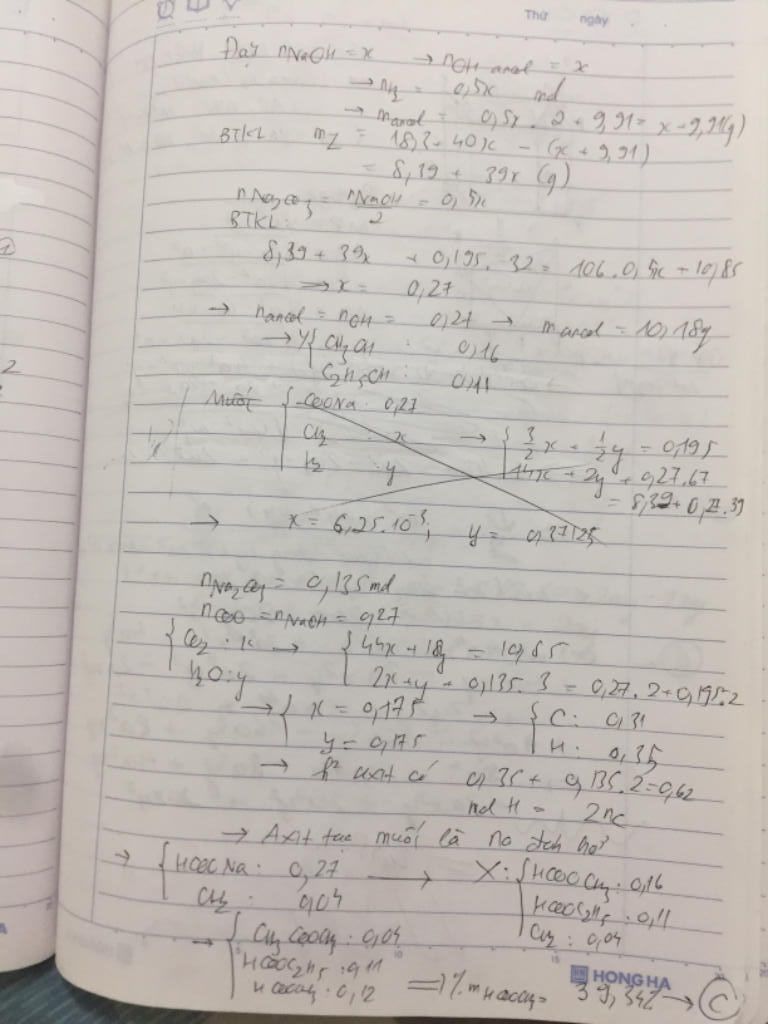 Thứ ngày
Đặt nNaOH = x → nOH ancol = x
→ nH2 = 0,5x mol
→ mancol = 0,5x . 2 + 9,91 = x + 9,91(g)
BTKL mZ = 18,3 + 40x - (x + 9,91)
= 8,39 + 39x (g)
nNa2CO3 = nNaOH/2 = 0,5x
BTKL:
8,39 + 39x + 0,195 . 32 = 106 . 0,5x + 10,85
⇒ x = 0,27
→ nancol = nOH = 0,27 → mancol = 10,18g
→ Y { CH3OH : 0,16
C2H5OH : 0,11
Muối { -COONa : 0,27
CH2 : x → { 3/2 x + 1/2 y = 0,195
H2 : y 14x + 2y + 0,27.67
= 8,39 + 0,27.39
→ x = 6,25.10⁻³, y = 0,37125
nNa2CO3 = 0,135 mol
nCOO = nNaOH = 0,27
{ CO2 : x → { 44x + 18y = 10,85
H2O : y 2x + y + 0,135 . 3 = 0,27 . 2 + 0,195 . 2
→ { x = 0,175 → { C : 0,31
y = 0,175 H : 0,35
→ h² axit có 0,35 + 0,135.2 = 0,62
mol H = 2nC
→ Axit tạo muối là no đơn hở
→ { HCOONa : 0,27 → X: { HCOOCH3 : 0,16
CH2 : 0,04 HCOOC2H5 : 0,11
CH2 : 0,04
→ { CH3COOCH3 : 0,04
HCOOC2H5 : 0,11
HCOOCH3 : 0,12 ⇒ %mHCOOCH3 = 39,34% → C
HONG HA